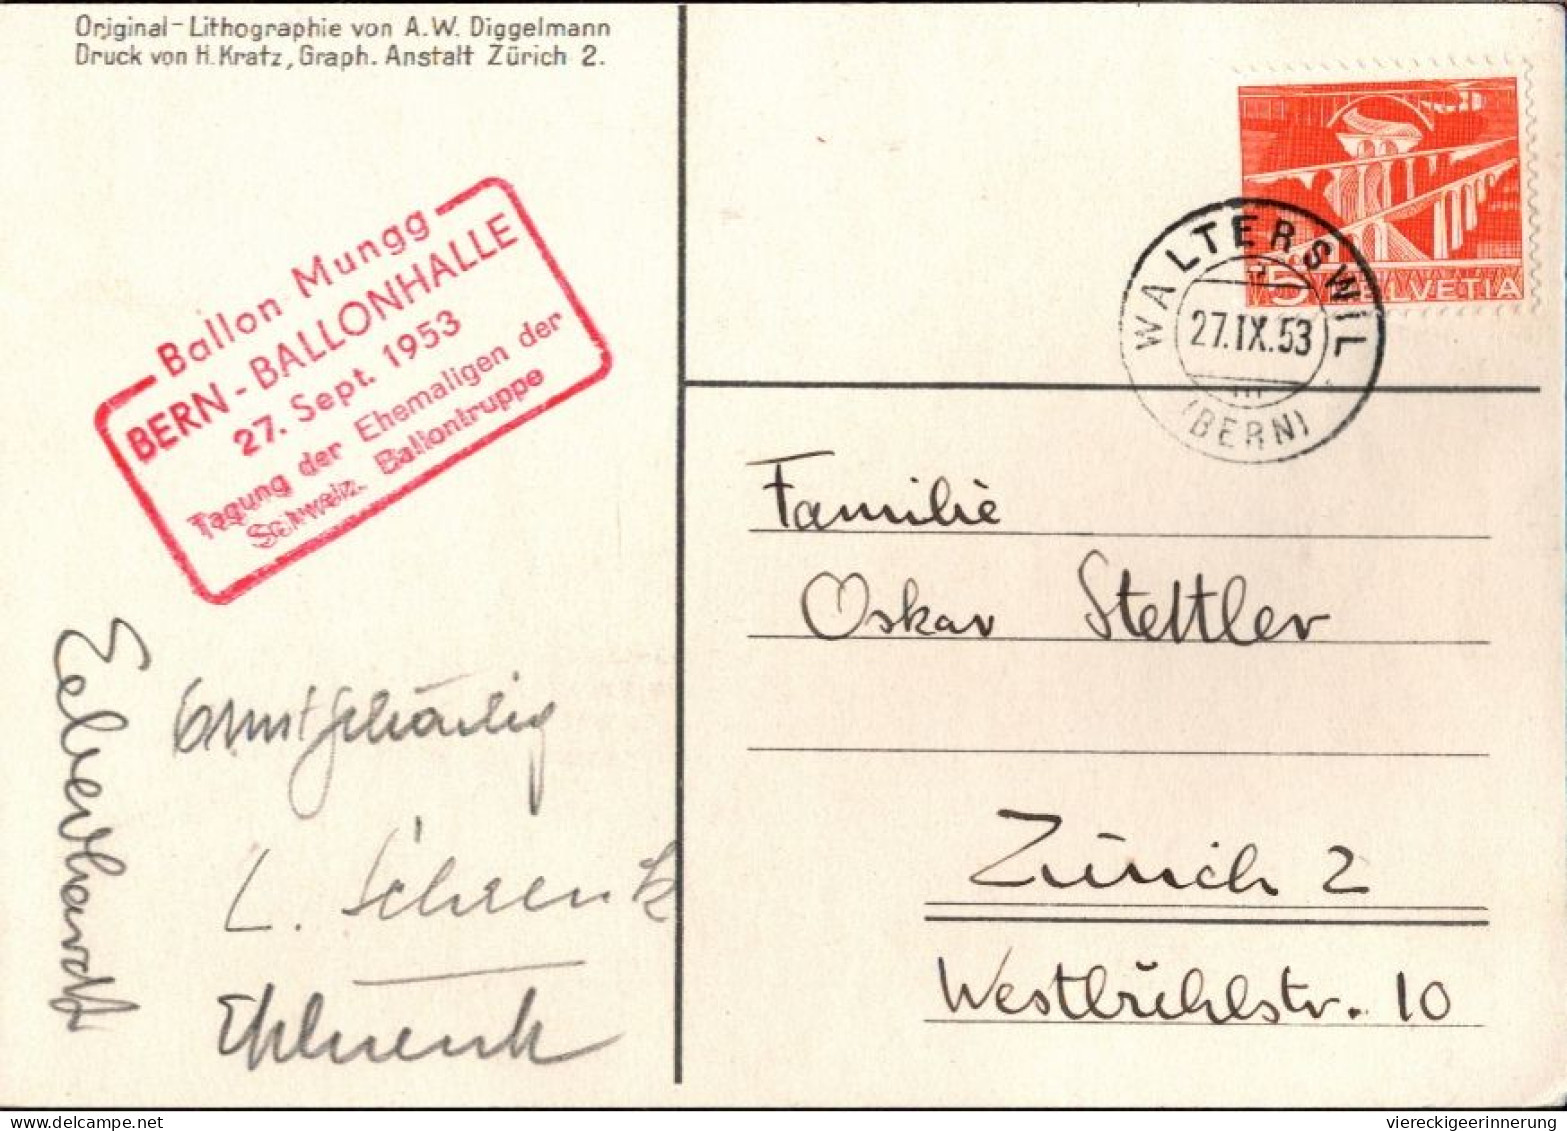 Original-Lithographie von A.W. Diggelmann
Druck von H. Kratz, Graph. Anstalt Zürich 2.
Ballon Mungg
BERN-BALLONHALLE
27. Sept. 1953
Tagung der Ehemaligen der
Schweiz. Ballontruppe
5 HELVETIA
WALTERSWIL
27.IX.53
(BERN)
Familie
Oskar Stettler
Zürich 2
Westbühlstr. 10
Eeberhardt
Ernst
L. Schrenk
viereckigeerinnerung